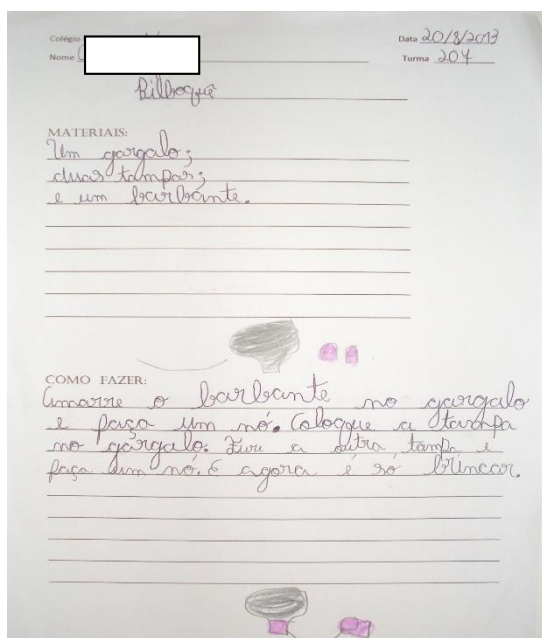 Colégio
Data 20/8/2013
Nome
Turma 204
Bilboquê
MATERIAIS:
Um gargalo;
duas tampas;
e um barbante.
COMO FAZER:
Amarre o barbante no gargalo
e faça um nó. Coloque a tampa
no gargalo. Fure a outra tampa e
faça um nó. E agora é só brincar.